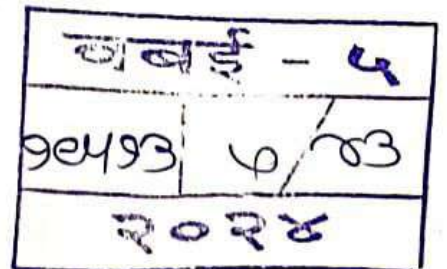 बबई - ५
१९५१३ ७/४३
२०२४